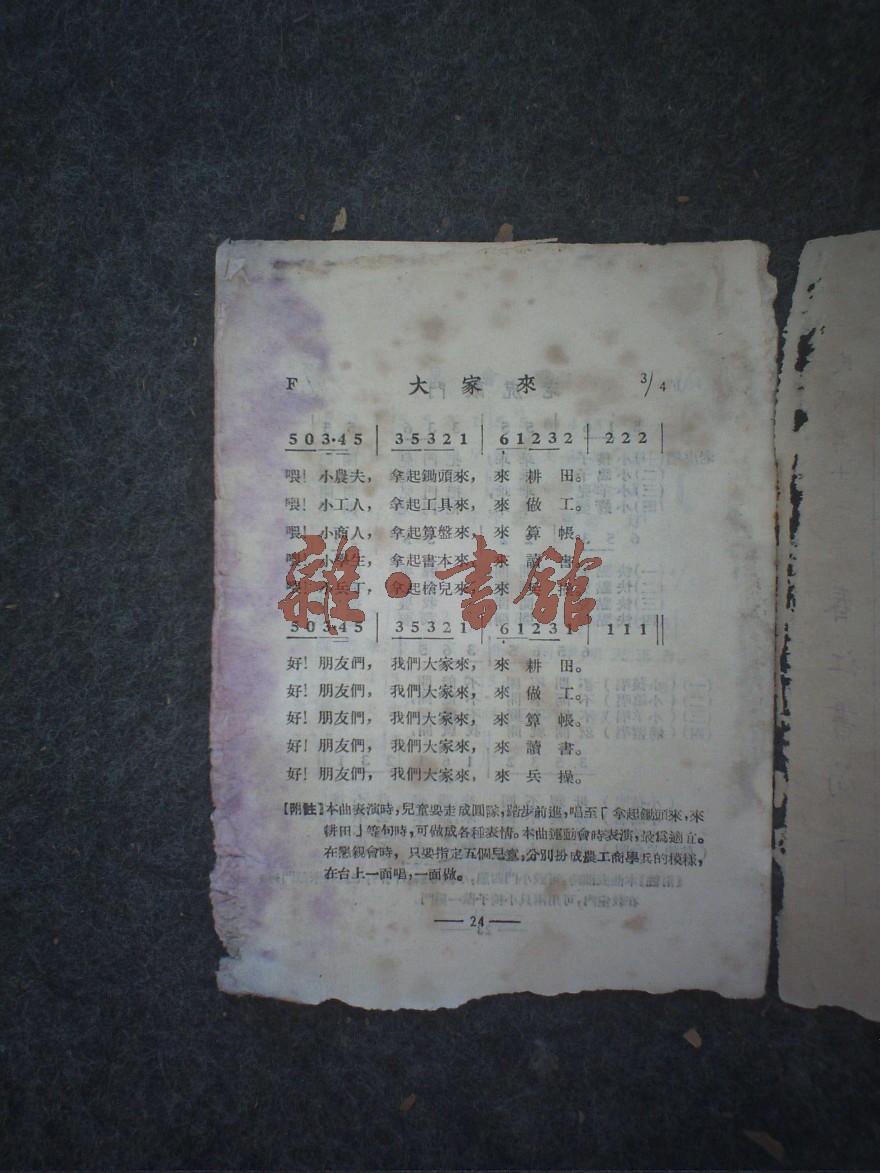 F 大家來 3/4
5 0 3·4 5 | 3 5 3 2 1 | 6 1 2 3 2 | 2 2 2 |
喂！小農夫，拿起鋤頭來，來耕田。
喂！小工人，拿起工具來，來做工。
喂！小商人，拿起算盤來，來算帳。
喂！小學生，拿起書本來，來讀書。
喂！小兵丁，拿起槍兒來，來兵操。
雜·書館
5 0 3·4 5 | 3 5 3 2 1 | 6 1 2 3 1 | 1 1 1 ‖
好！朋友們，我們大家來，來耕田。
好！朋友們，我們大家來，來做工。
好！朋友們，我們大家來，來算帳。
好！朋友們，我們大家來，來讀書。
好！朋友們，我們大家來，來兵操。
【附註】本曲表演時，兒童要走成圓隊，踏步前進，唱至「拿起鋤頭來，來
耕田」等句時，可做成各種表情。本曲運動會時表演，最爲適宜。
在懇親會時，只要指定五個兒童，分別扮成農工商學兵的模樣，
在台上一面唱，一面做。
— 24 —